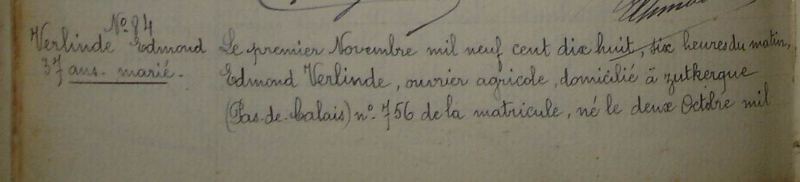 N° 84
Verlinde Edmond
37 ans. marié.
Le premier Novembre mil neuf cent dix huit, six heures du matin,
Edmond Verlinde, ouvrier agricole, domicilié à Zutkerque
(Pas-de-Calais) n° 756 de la matricule, né le deux Octobre mil